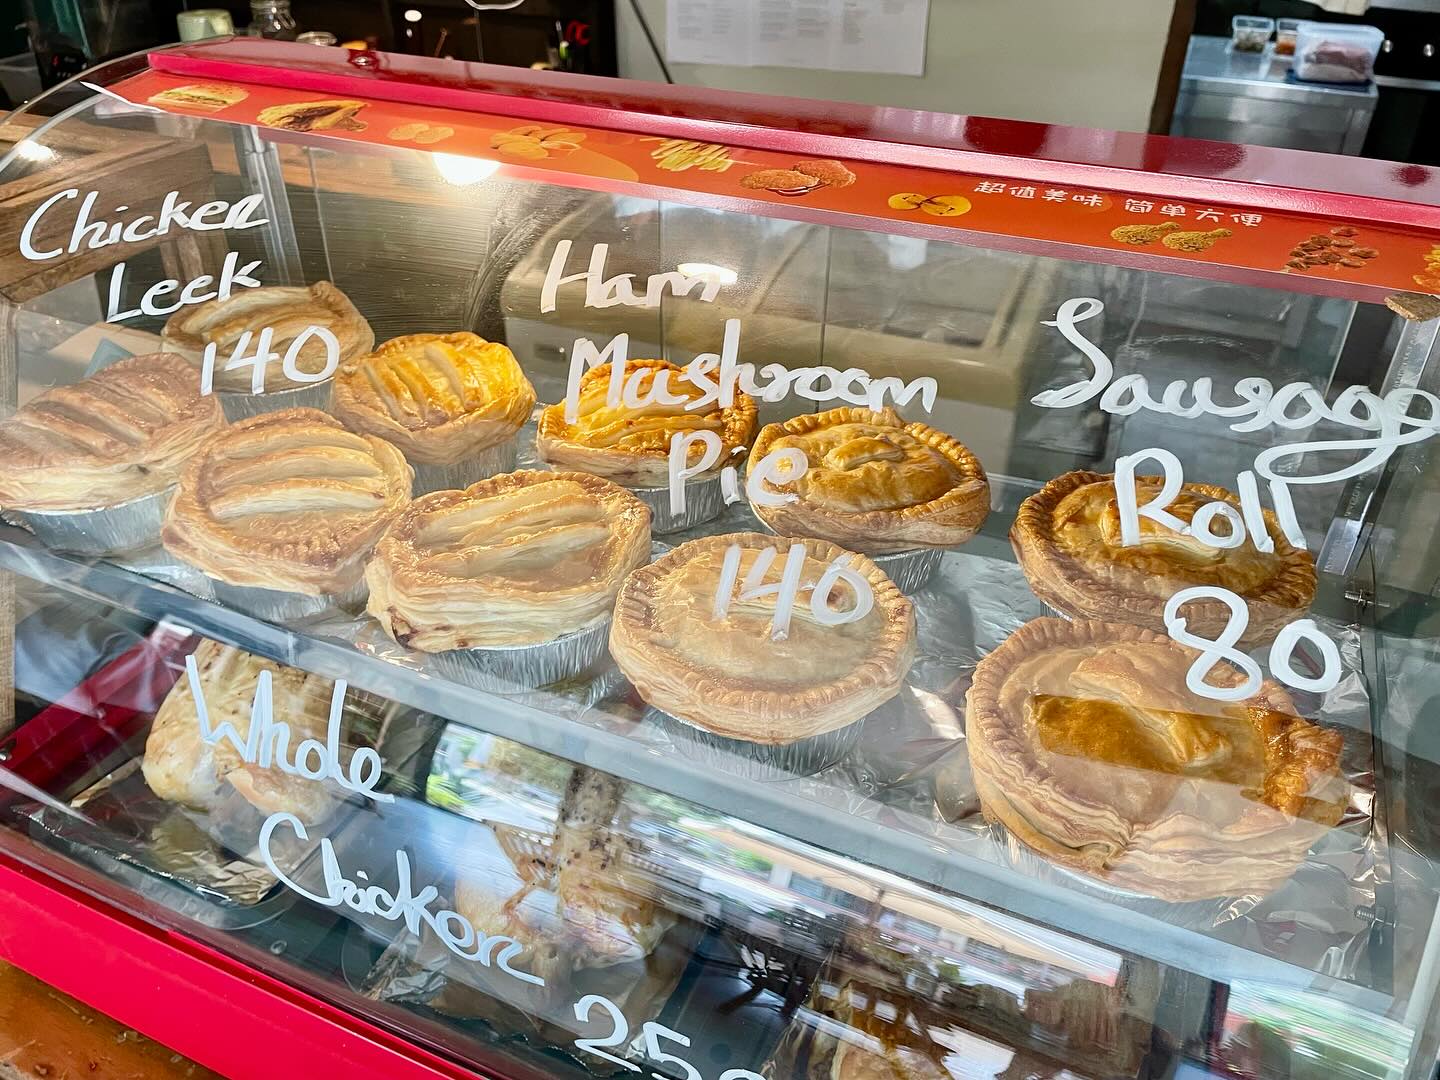 超值美味 简单方便
Chicken
Leek
140
Ham
Mushroom
Pie
140
Sausage
Roll
80
Whole
Chicken
250